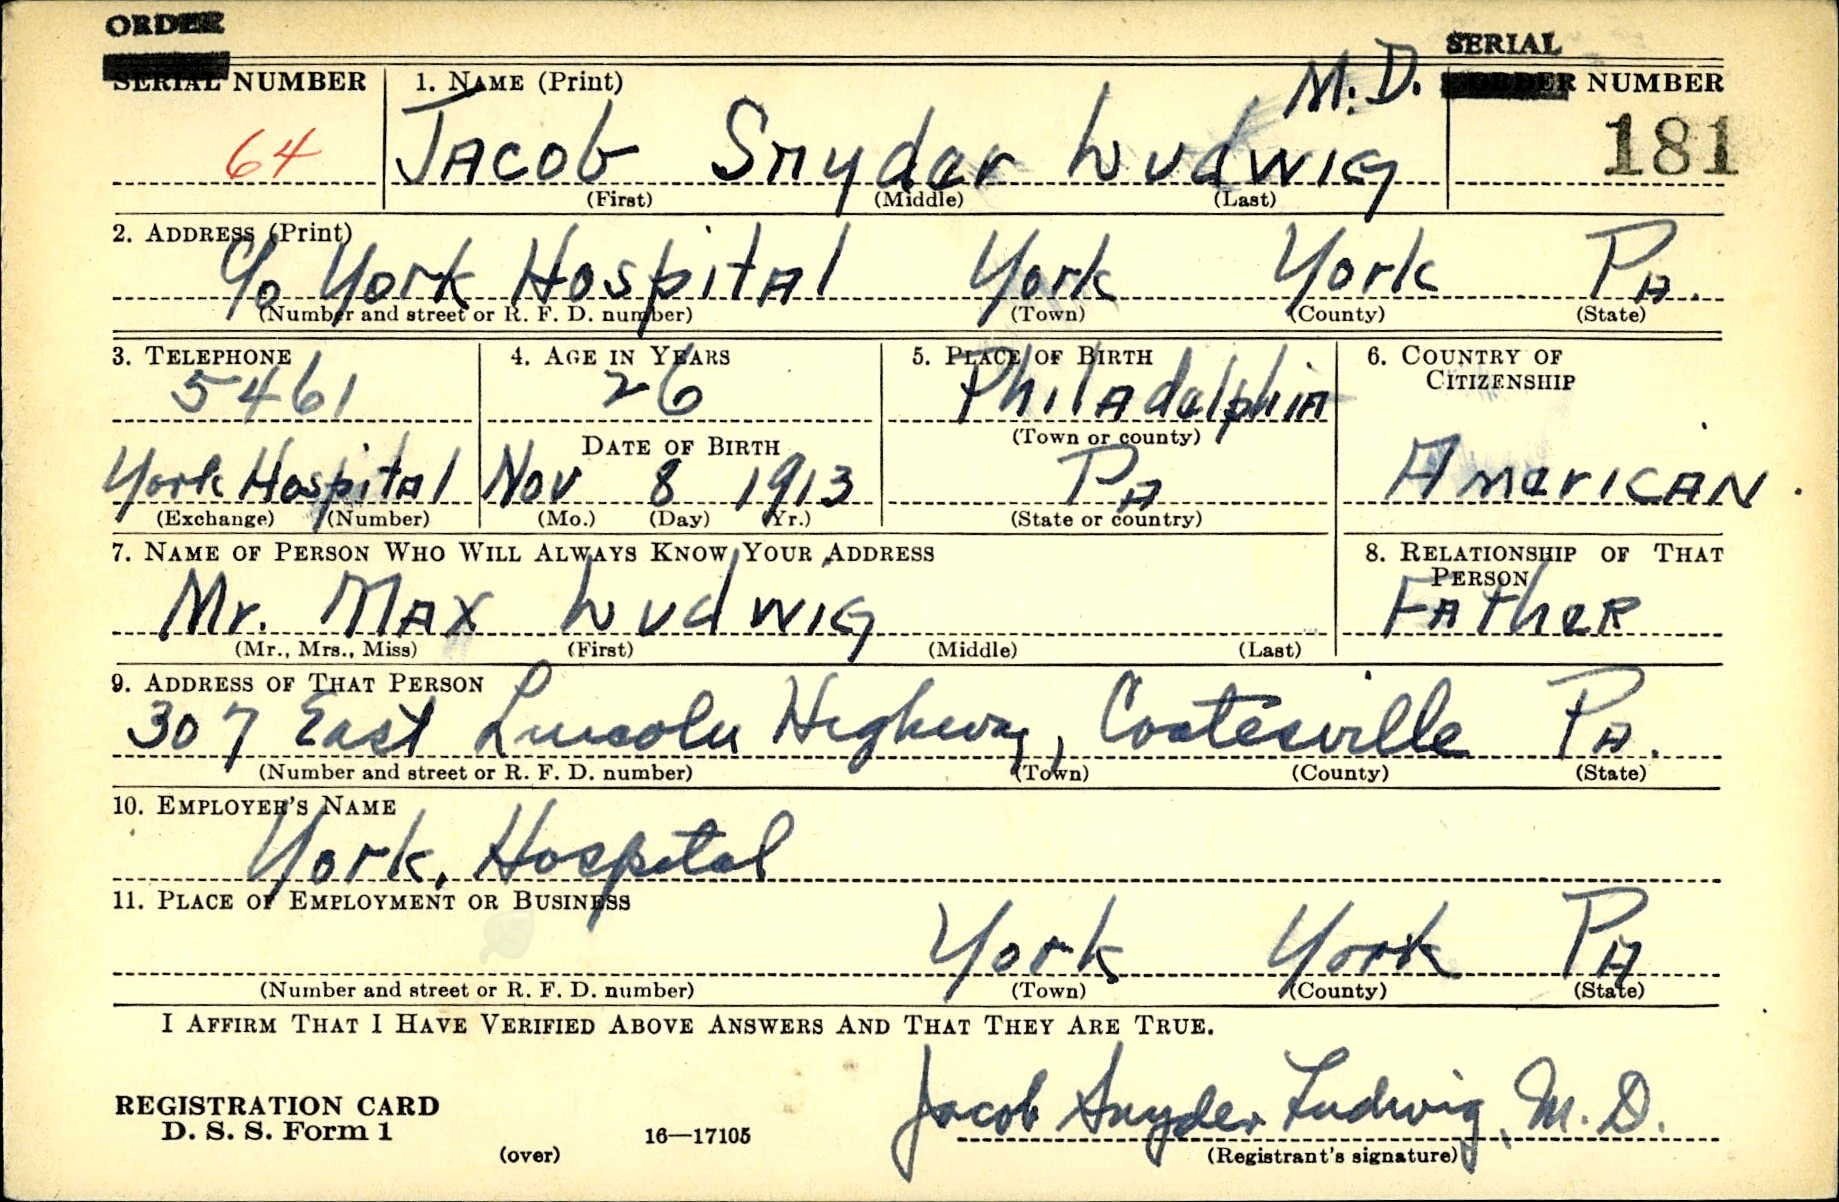 ORDER
SERIAL
SERIAL NUMBER
1. NAME (Print)
M.D.
ORDER NUMBER
64
Jacob Snyder Ludwig
181
(First) (Middle) (Last)
2. ADDRESS (Print)
c/o York Hospital York York Pa.
(Number and street or R. F. D. number) (Town) (County) (State)
3. TELEPHONE 4. AGE IN YEARS 5. PLACE OF BIRTH 6. COUNTRY OF CITIZENSHIP
5461 26 Philadelphia
DATE OF BIRTH (Town or county)
York Hospital Nov 8 1913 Pa American.
(Exchange) (Number) (Mo.) (Day) (Yr.) (State or country)
7. NAME OF PERSON WHO WILL ALWAYS KNOW YOUR ADDRESS 8. RELATIONSHIP OF THAT PERSON
Mr. Max Ludwig Father
(Mr., Mrs., Miss) (First) (Middle) (Last)
9. ADDRESS OF THAT PERSON
307 East Lincoln Highway, Coatesville Pa.
(Number and street or R. F. D. number) (Town) (County) (State)
10. EMPLOYER'S NAME
York, Hospital
11. PLACE OF EMPLOYMENT OR BUSINESS
York York Pa
(Number and street or R. F. D. number) (Town) (County) (State)
I AFFIRM THAT I HAVE VERIFIED ABOVE ANSWERS AND THAT THEY ARE TRUE.
Jacob Snyder Ludwig, M.D.
REGISTRATION CARD
D. S. S. Form 1 16—17105
(over) (Registrant's signature)